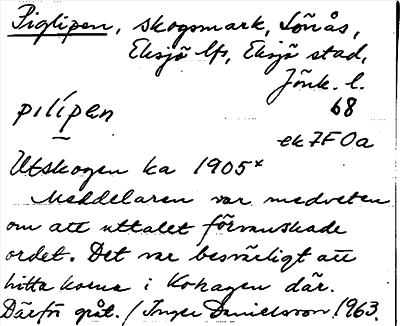 Piglipen, skogsmark, Lönås,
Eksjö lfs, Eksjö stad,
Jönk. l.
pilípen 68
ek 7F 0a
Utskogen ka 1905x
Meddelaren var medveten
om att uttalet förvanskade
ordet. Det var besvärligt att
hitta korna i Kohagen där.
Därför gråt. / Inger Danielsson 1963.